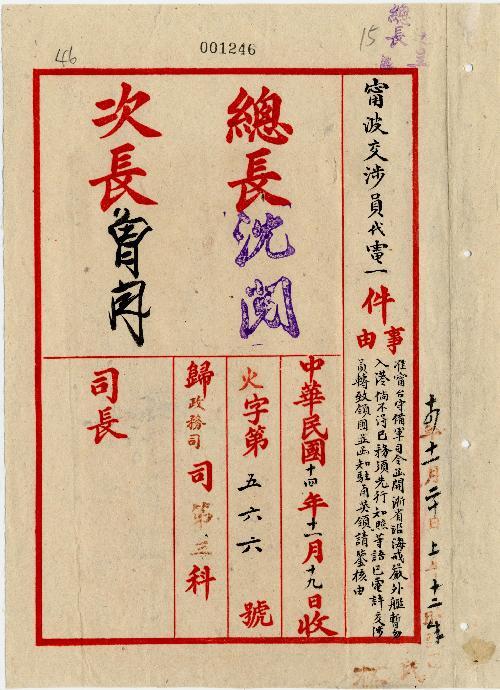 001246
46
15
總長
甯波交涉員代電一件
事由
准甯台守備軍司令函開浙省沿海戒嚴外艦暫勿
入港倘不得已務須先行知照等語已電許交涉
員轉致領團並函知駐甬英領請鑒核由
總長
沈閱
次長
曾閱
中華民國十四年十一月十九日收
火字第五六六號
歸政務司司第三科
司長
十一月二十日上